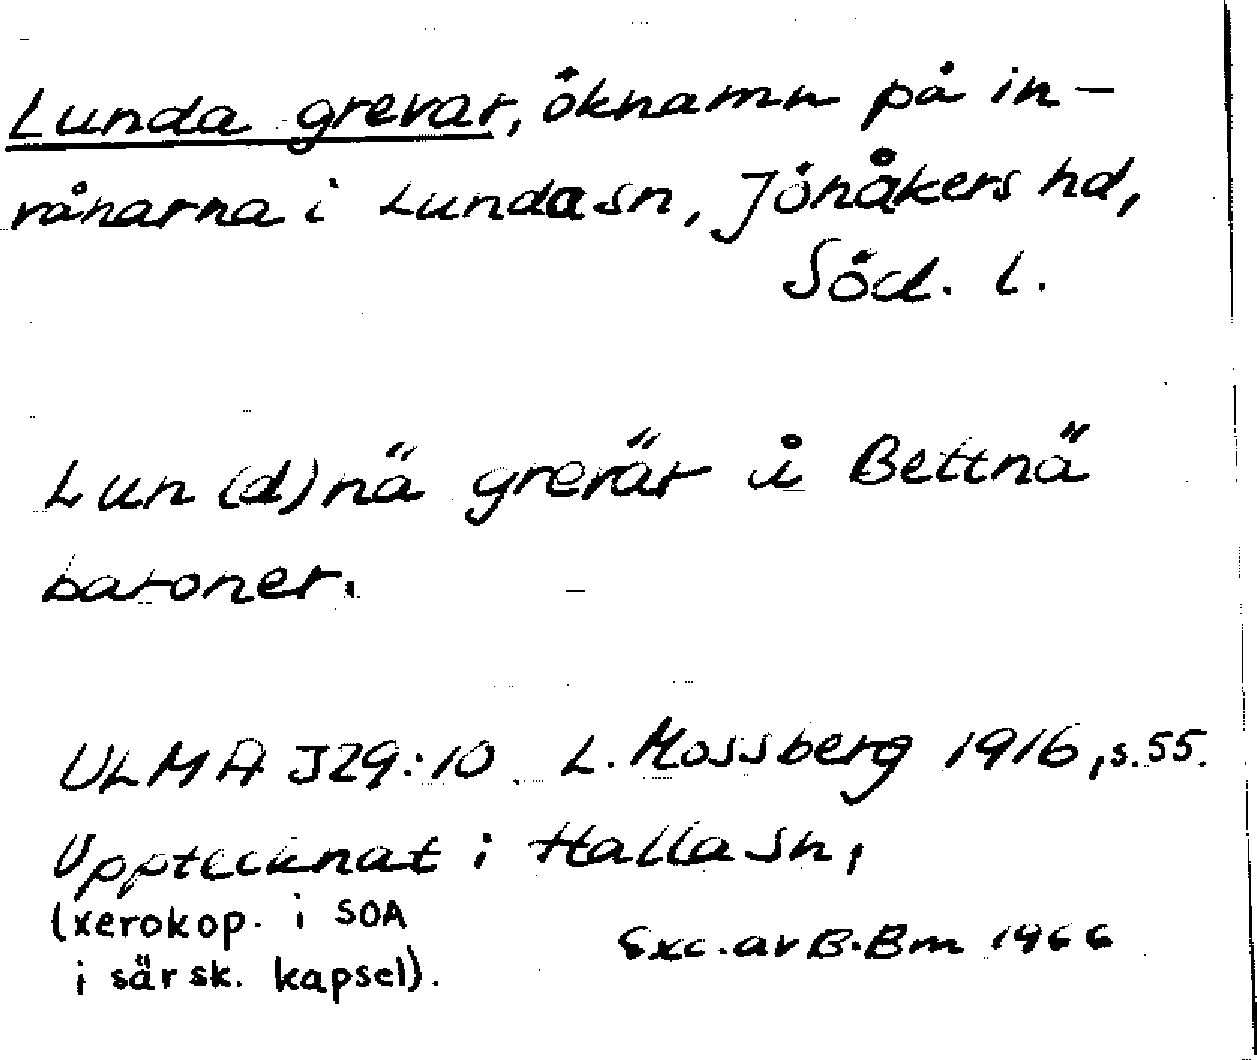 Lunda grevar, öknamn på in-
vånarna i Lunda sn, Jönåkers hd,
Söd. l.
Lun(d)nä grevär å Bettnä
baroner.
ULMA 329:10. L. Mossberg 1916, s. 55.
Upptecknat i Halla sn,
(xerokop. i SOA
i särsk. kapsel).
Exc. av B. Bm 1966